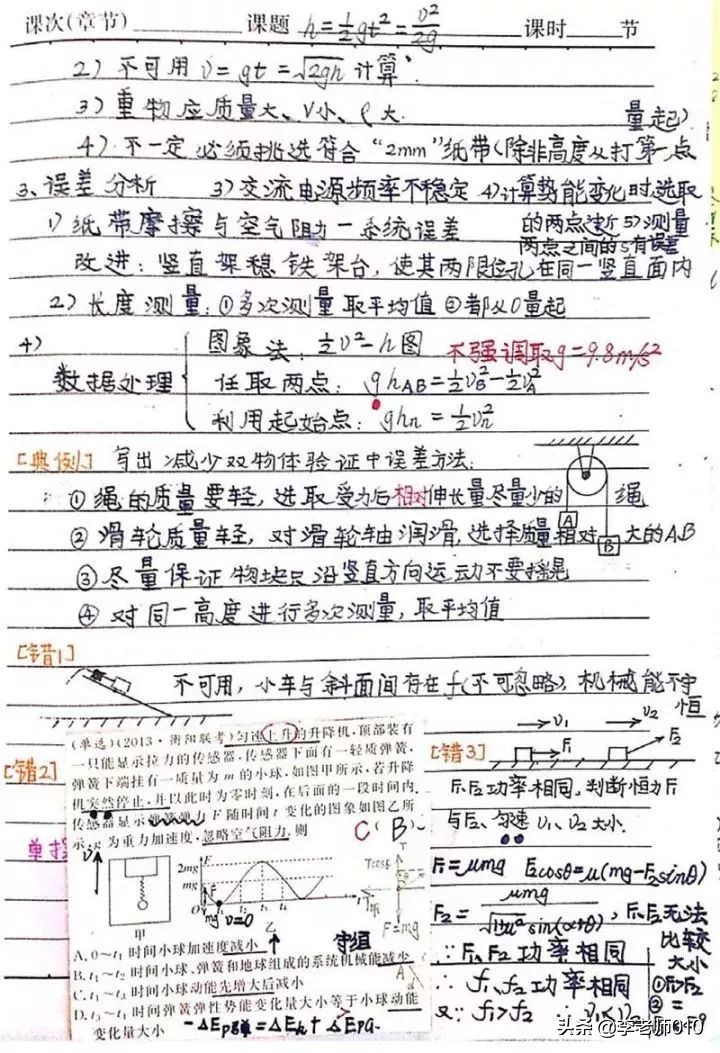 课次(章节)________课题 h=½gt²=v²/2g 课时____节
2) 不可用 v=gt=√2gh 计算
3) 重物应质量大、V小、ρ大
量起)
4) 不一定必须挑选符合“2mm”纸带(除非高度从打第一点
3、误差分析 3)交流电源频率不稳定 4)计算势能变化时,选取
1) 纸带摩擦与空气阻力—系统误差 的两点过近 5)测量
两点之间的s有误差
改进:竖直架稳铁架台,使其两限位孔在同一竖直面内
2) 长度测量:①多次测量取平均值 ②都从0量起
4)
数据处理
图象法:½v²-h图 不强调取g=9.8m/s²
任取两点:ghAB=½vB²-½vA²
利用起始点:ghn=½vn²
[典例1] 写出减少双物体验证中误差方法:
①绳的质量要轻,选取受力后相对伸长量尽量少的绳
A
②滑轮质量轻,对滑轮轴润滑,选择质量相对大的A、B
B
③尽量保证物块只沿竖直方向运动不要摇晃
④对同一高度进行多次测量,取平均值
[错1]
不可用,小车与斜面间存在f(不可忽略),机械能不守
恒
[错2]
(单选)(2013·衡阳联考)匀速上升的升降机,顶部装有
一只能显示拉力的传感器,传感器下面有一轻质弹簧,
弹簧下端挂有一质量为 m 的小球,如图甲所示,若升降
机突然停止,并以此时为零时刻,在后面的一段时间内,
传感器显示弹簧弹力 F 随时间 t 变化的图象如图乙所
示,g 为重力加速度,忽略空气阻力,则 C(B)
v F 2mg mg O t₁ t₂ t₃ t₄ t
mg v=0 F=mg
甲 乙
A. 0~t₁ 时间小球加速度减小
守恒
B. t₁~t₂ 时间小球、弹簧和地球组成的系统机械能减少
C. t₁~t₃ 时间小球动能先增大后减小
D. t₃~t₄ 时间弹簧弹性势能变化量大小等于小球动能
变化量大小 -ΔEp弹=ΔEk+ΔEpG
[错3] v₁ F₁ v₂ F₂
F₁、F₂功率相同,判断恒力F₁
与F₂、匀速v₁、v₂大小.
F₁=μmg F₂cosθ=μ(mg-F₂sinθ)
F₂=μmg/√1+μ² sin(α+θ),F₁、F₂无法
比较
大小
∵F₁、F₂功率相同 ①F₁>F₂
∴f₁、f₂功率相同 ② =
又∵f₁>f₂ ∴v₁<v₂
头条@李老师010